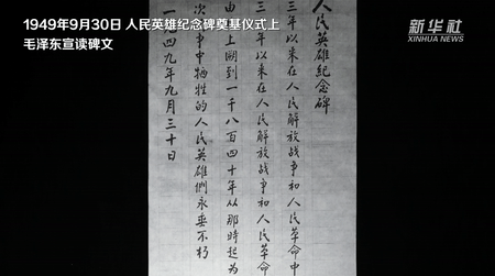 1949年9月30日 人民英雄纪念碑奠基仪式上
毛泽东宣读碑文
新华社
XINHUA NEWS
人民英雄紀念碑
三年以来在人民解放战争和人民革命中
三年以来在人民解放战争和人民革命
由上溯到一千八百四十年从那時起为
次争中犧牲的人民英雄們永垂不朽
一九四九年九月三十日